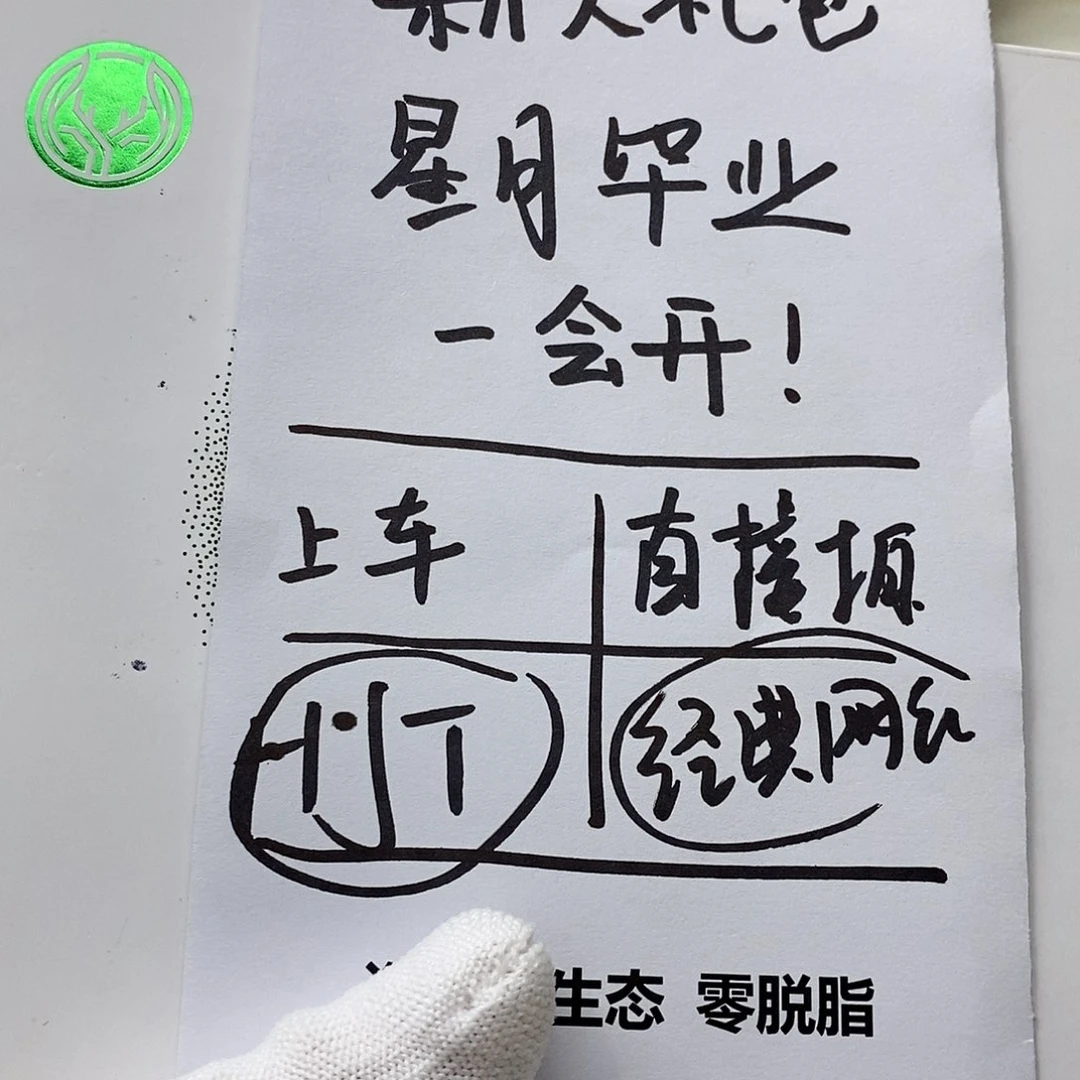 新人礼包
星月毕业
一会开！
上车 直接拍
HJT 经典网红
生态 零脱脂